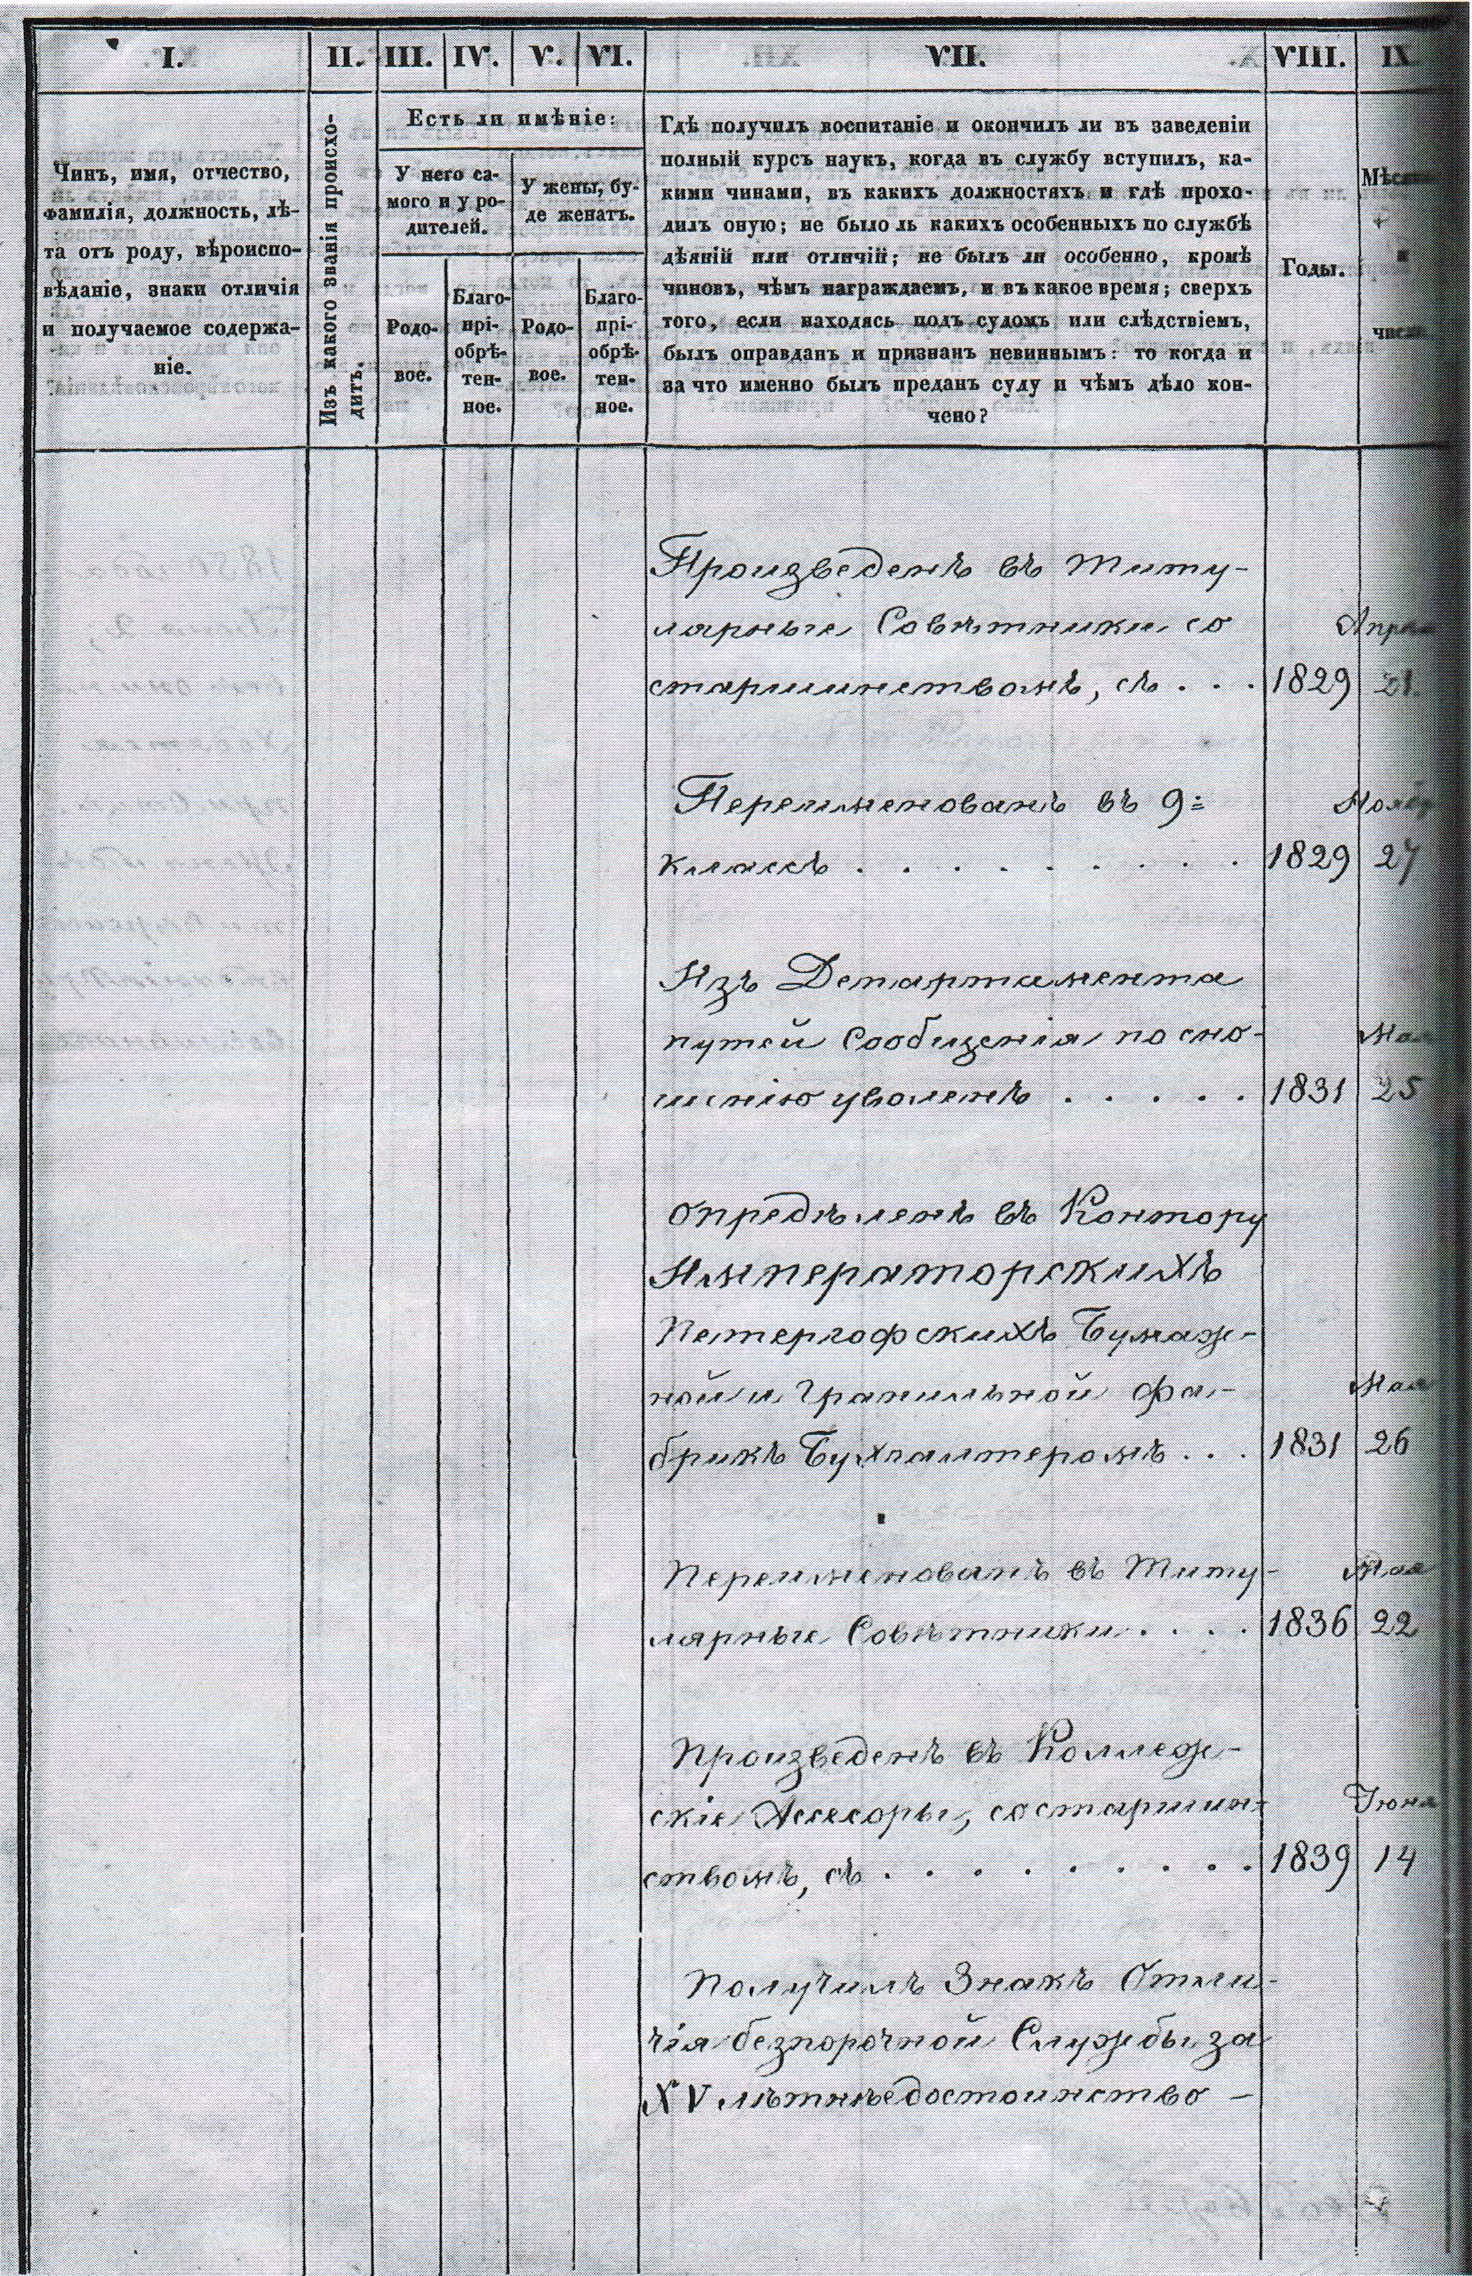 I.
II.
III.
IV.
V.
VI.
VII.
VIII.
IX.
Чинъ, имя, отчество,
фамилія, должность, лѣ-
та отъ роду, вѣроиспо-
вѣданіе, знаки отличія
и получаемое содержа-
ніе.
Изъ какого званія происхо-
дитъ.
Есть ли имѣніе:
У него са-
мого и у ро-
дителей.
У жены, бу-
де женатъ.
Родо-
вое.
Благо-
прі-
обрѣ-
тен-
ное.
Родо-
вое.
Благо-
прі-
обрѣ-
тен-
ное.
Гдѣ получилъ воспитаніе и окончилъ ли въ заведеніи
полный курсъ наукъ, когда въ службу вступилъ, ка-
кими чинами, въ какихъ должностяхъ и гдѣ прохо-
дилъ оную; не было ль какихъ особенныхъ по службѣ
дѣяній или отличій; не былъ ли особенно, кромѣ
чиновъ, чѣмъ награждаемъ, и въ какое время; сверхъ
того, если находясь подъ судомъ или слѣдствіемъ,
былъ оправданъ и признанъ невиннымъ: то когда и
за что именно былъ преданъ суду и чѣмъ дѣло кон-
чено?
Годы.
и
числа.
Произведенъ въ Титу-
лярные Совѣтники со
старшинствомъ, съ . . . 1829 21.
Переименованъ въ 9=
классъ . . . . . . . . . 1829 27
Изъ Департамента
путей Сообщенія по сно- Мая
шенію уволенъ . . . . . 1831 25
Опредѣленъ въ Контору
Императорскихъ
Петергофскихъ Бумаж-
ной и Гранильной фа- Мая
брикъ Бухгалтеромъ . . . 1831 26
Переименованъ въ Титу- Мая
лярные Совѣтники . . . . 1836 22
Произведенъ въ Коллеж-
скіе Ассесоры, со старшин- Іюня
ствомъ, съ . . . . . . . . . 1839 14
Получилъ Знакъ Отли-
чія безпорочной Службы за
XV лѣтнѣе достоинство -